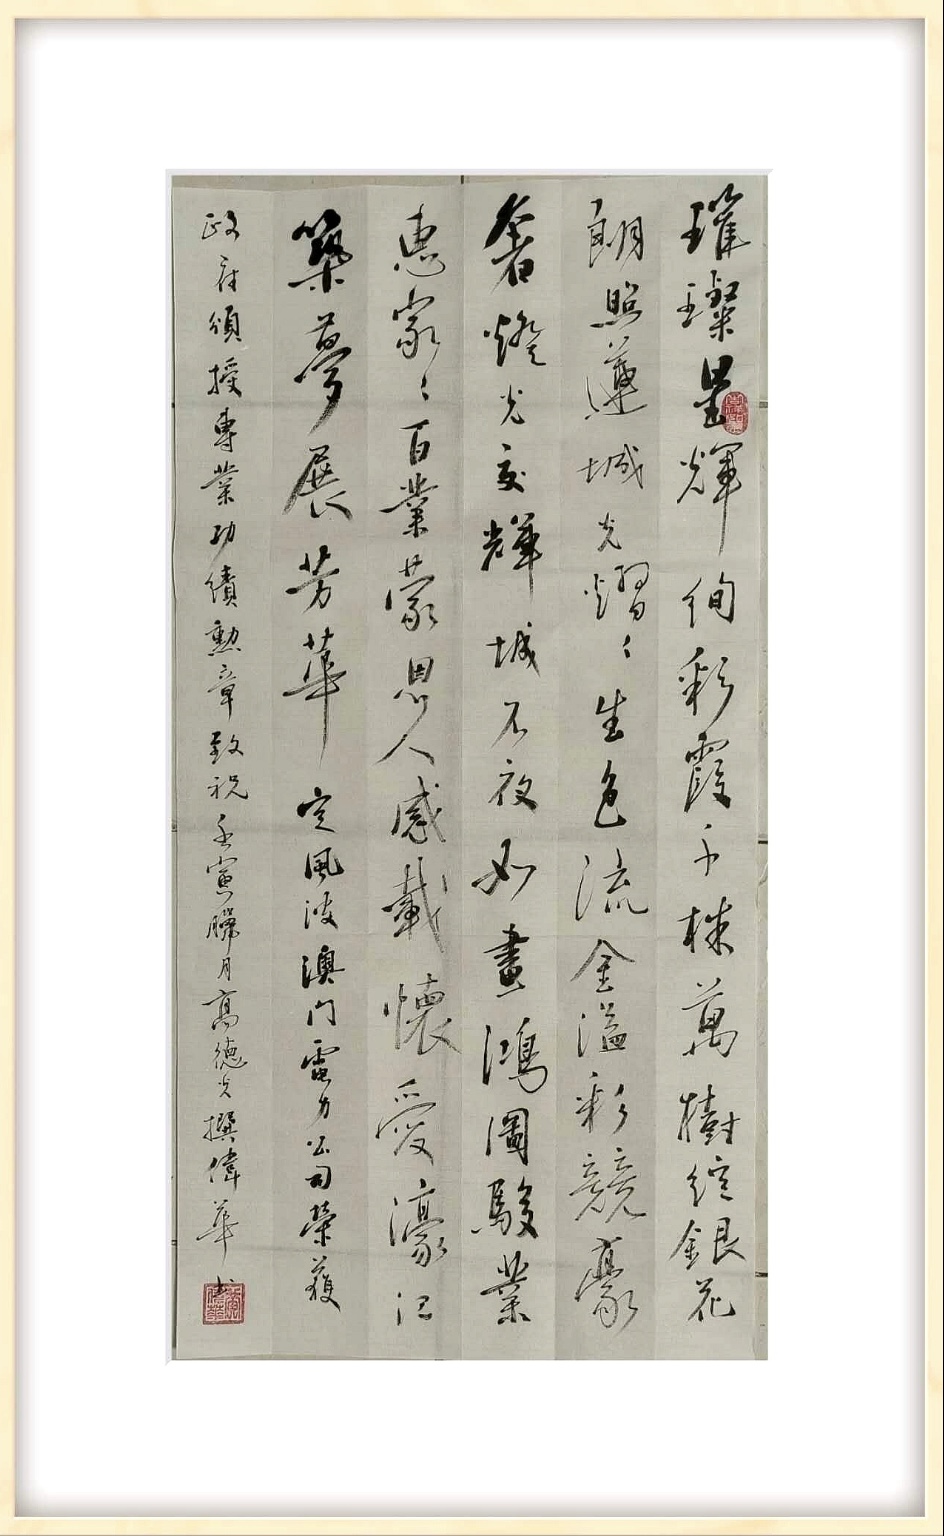 璀璨星輝絢彩霞千株萬樹綻銀花
朗照蓮城光熠〻生色流金溢彩競豪
奢燈光交輝城不夜如畫鴻圖駿業
惠家〻百業蒙恩人感載懷愛濠江
築夢展芳華 定風波澳門電力公司榮獲
政府頒授專業功績勳章致祝壬寅臘月高德光撰偉華书